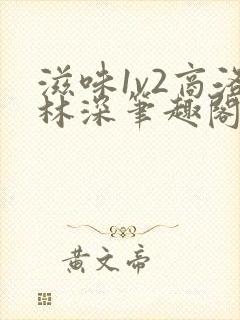 滋味1v2高洛
林深笔趣阁
黄文帝